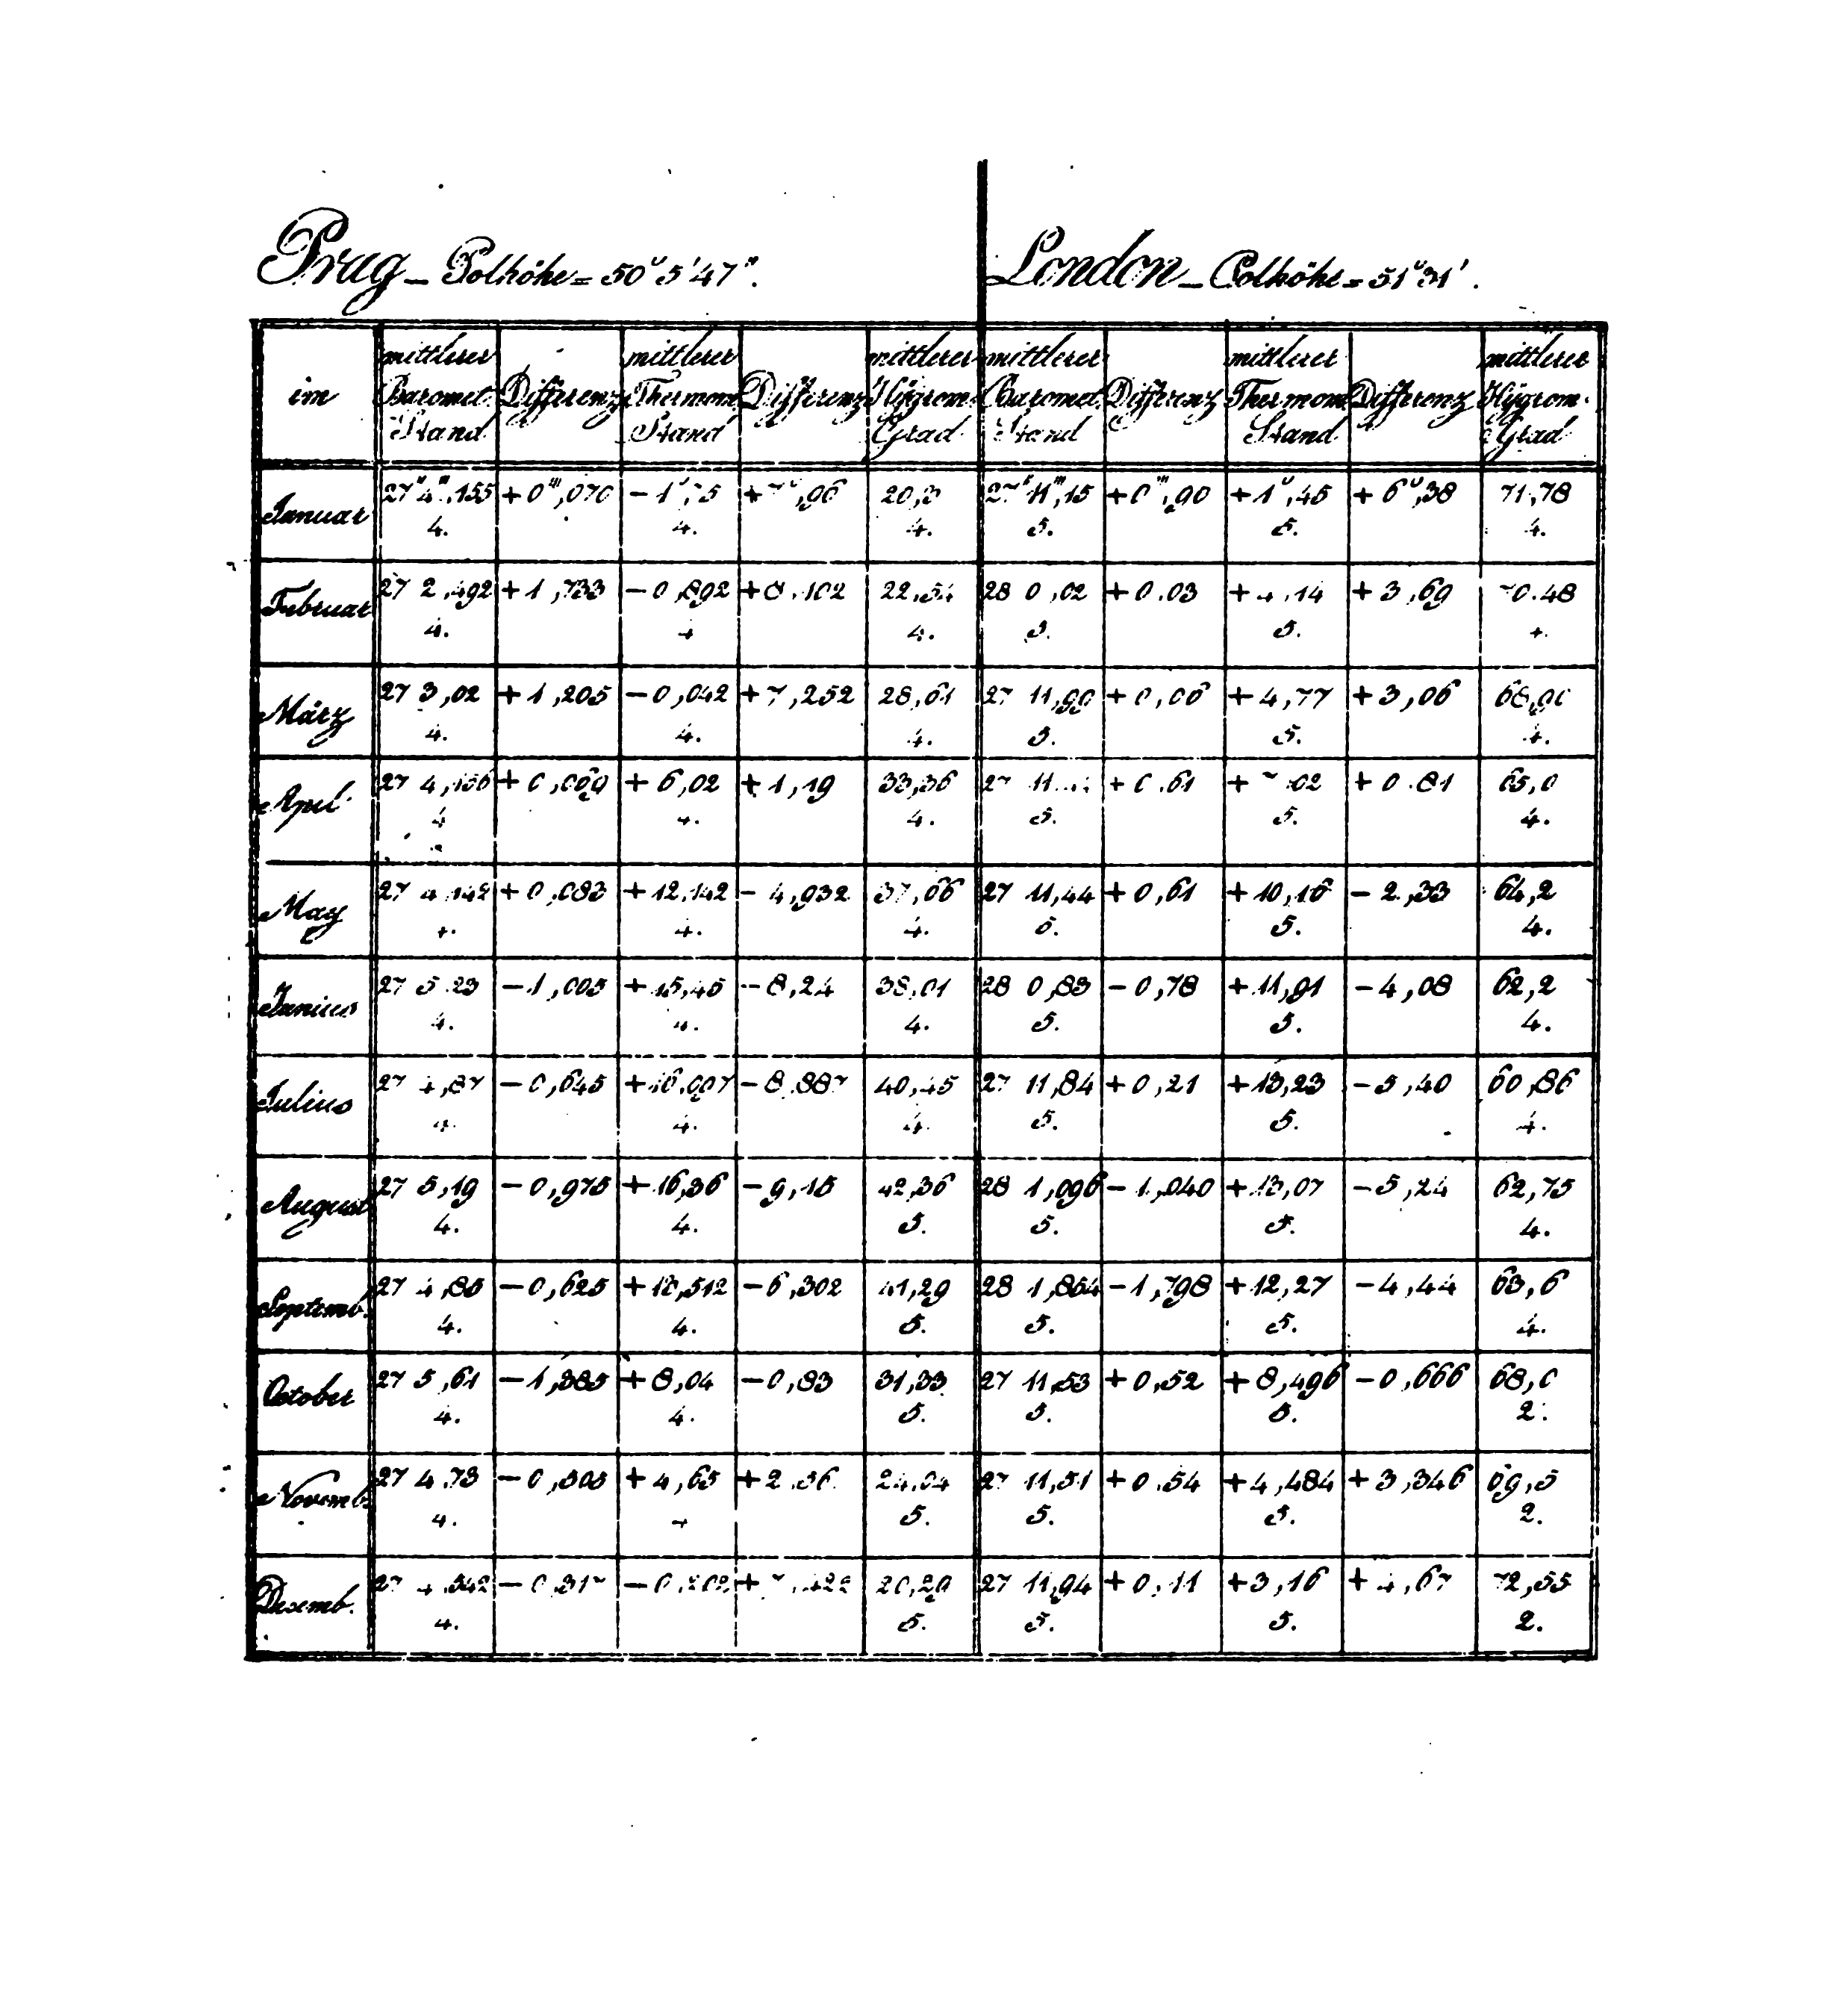 Prag - Polhöhe = 50° 5' 47".
London - Polhöhe = 51° 31'.
im | mittlerer Baromet. Stand | Differenz | mittlerer Thermom. Stand | Differenz | mittlerer Hÿgrom. Grad | mittlerer Baromet. Stand | Differenz | mittlerer Thermom. Stand | Differenz | mittlerer Hÿgrom. Grad
Januar | 27" 4"',155 | +0"',070 | | | 20,3 | 27" 11"',15 | +0"',90 | +1°,45 | +6°,38 | 71,78
4. 4. 4. 5. 5. 4.
Februar | 27 2,492 | +1,733 | -0,892 | +8,102 | 22,54 | 28 0,02 | +0.03 | +4,14 | +3,69 | 70.48
4. 4 4. 5. 5. 4.
März | 27 3,02 | +1,205 | -0,042 | +7,252 | 28,61 | 27 11,99 | +0,06 | +4,77 | +3,06 | 68,90
4. 4. 4. 5. 5. 4.
April | 27 4,156 | +0,069 | +6,02 | +1,19 | 33,36 | 27 | +0,61 | | +0.81 | 65,0
4 4. 4. 5. 5. 4.
May | 27 4,142 | +0,083 | +12,142 | -4,932 | 37,66 | 27 11,44 | +0,61 | +10,16 | -2,33 | 64,2
4. 4. 4. 5. 5. 4.
Junius | 27 5.23 | -1,005 | +15,45 | -8,24 | 38,01 | 28 0,83 | -0,78 | +11,91 | -4,08 | 62,2
4. 4. 4. 5. 5. 4.
Julius | 27 4,87 | -0,645 | +16,097 | -8.887 | 40,45 | 27 11,84 | +0,21 | +13,23 | -5,40 | 60,86
4. 4. 4. 5. 5. 4.
August | 27 5,19 | -0,975 | +16,36 | -9,15 | 42,36 | 28 1,096 | -1,040 | +13,07 | -5,24 | 62,75
4. 4. 5. 5. 5. 4.
Septemb. | 27 4,85 | -0,625 | +13,512 | -6,302 | 41,29 | 28 1,854 | -1,798 | +12,27 | -4,44 | 63,6
4. 4. 5. 5. 5. 4.
October | 27 5,61 | -1,385 | +8,04 | -0,83 | 31,33 | 27 11,53 | +0,52 | +8,496 | -0,666 | 68,0
4. 4. 5. 5. 5. 2.
Novemb. | 27 4.73 | -0,505 | +4,65 | +2.36 | 24,04 | 27 11,51 | +0.54 | +4,484 | +3,346 | 69,5
4. 4 5. 5. 5. 2.
Dezemb. | 27 4,542 | -0,317 | | | 20,29 | 27 11,94 | +0,11 | +3,16 | +4,67 | 72,55
4. 5. 5. 5. 2.